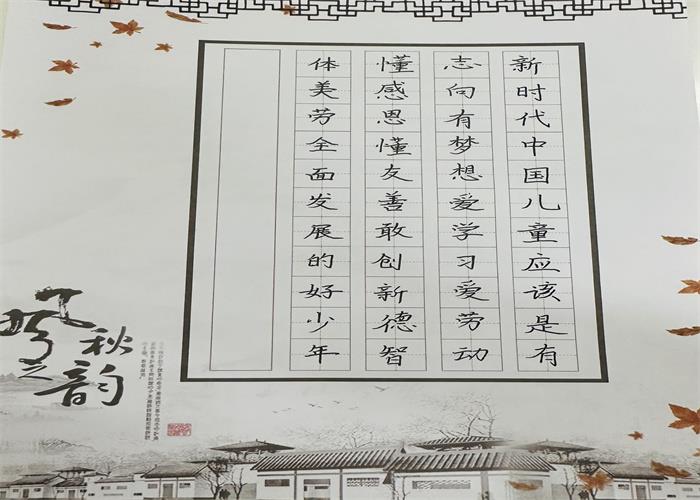 新时代中国儿童应该是有
志向有梦想爱学习爱劳动
懂感恩懂友善敢创新德智
体美劳全面发展的好少年
风之秋韵